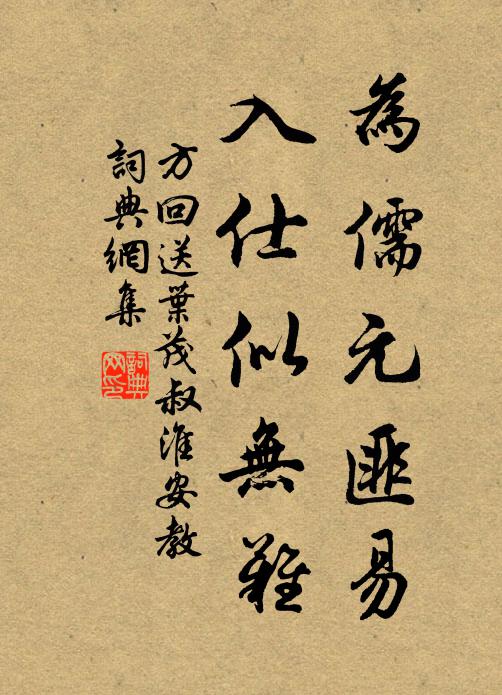 為儒元匪易
入仕似無難
方回送葉茂叔淮安教
詞典網集
詞典网印